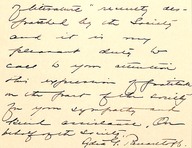 literature" recently do-
nated by the Society
and it is my
pleasant duty to
call to your attention
this expression of gratitude
on the part of the Society
for your sympathy
kind assistance. On
behalf of the Society.
Lydia G.